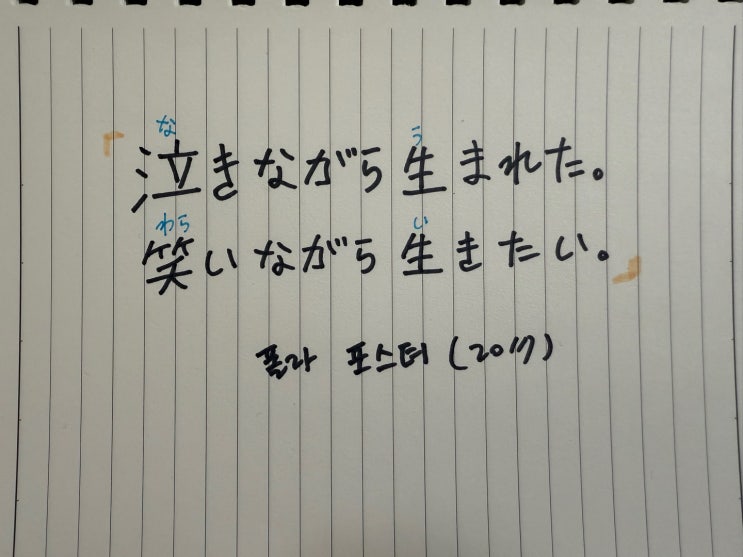 「泣きながら生まれた。
笑いながら生きたい。」
폴라 포스터 (2017)